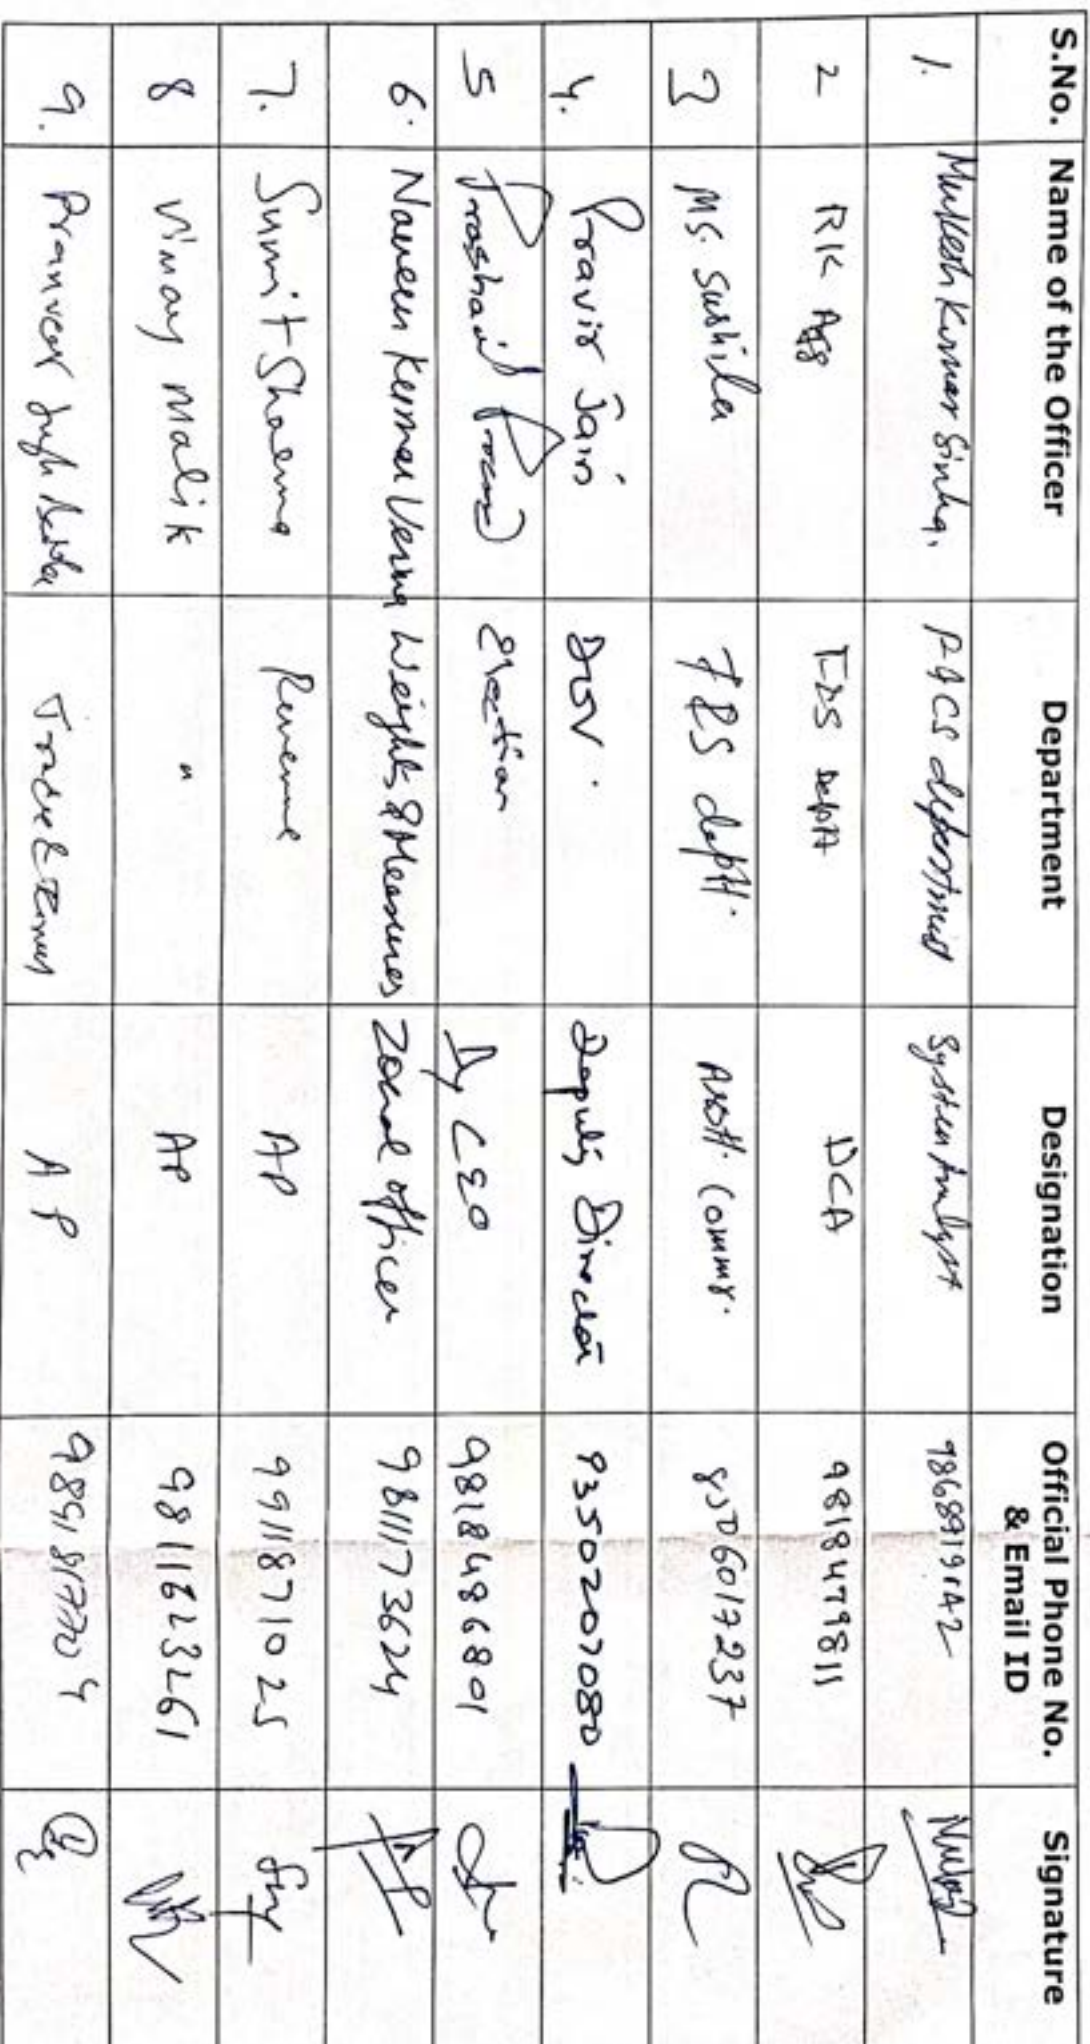 S.No. Name of the Officer Department Designation Official Phone No. & Email ID Signature
1. Mukesh Kumar Sinha, department System Analyst
2 RK Dept DCA 9818479811
3 Ms. Sushila F&S deptt. Asstt. Commr. 8506017237
4. Pravir Jain Deputy Director 9350207080
5 Prashant Election Dy CEO 9818486801
6. Naveen Kumar Verma Weights & Measures Zonal officer 9811173624
7. Sumit Sharma Revenue AP 9911871025
8 Vinay Malik " AP 9811623261
9. Pranveer Singh Trade & AP